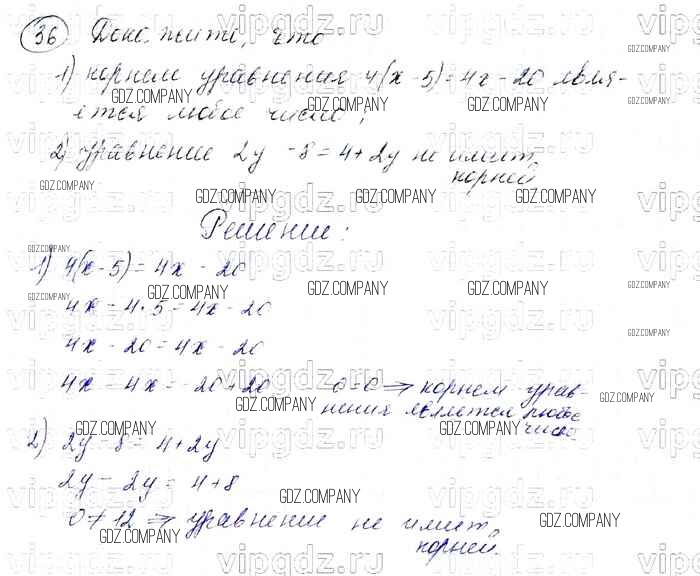 36 Докажите, что
1) корнем уравнения 4(x - 5) = 4x - 20 явля-
ется любое число;
2) уравнение 2y - 8 = 4 + 2y не имеет
корней
Решение:
1) 4(x - 5) = 4x - 20
4x - 4·5 = 4x - 20
4x - 20 = 4x - 20
4x - 4x = -20 + 20 0 = 0 ⇒ корнем урав-
нения является любое
число
2) 2y - 8 = 4 + 2y
2y - 2y = 4 + 8
0 ≠ 12 ⇒ уравнение не имеет
корней.
vipgdz.ru
GDZ.COMPANY